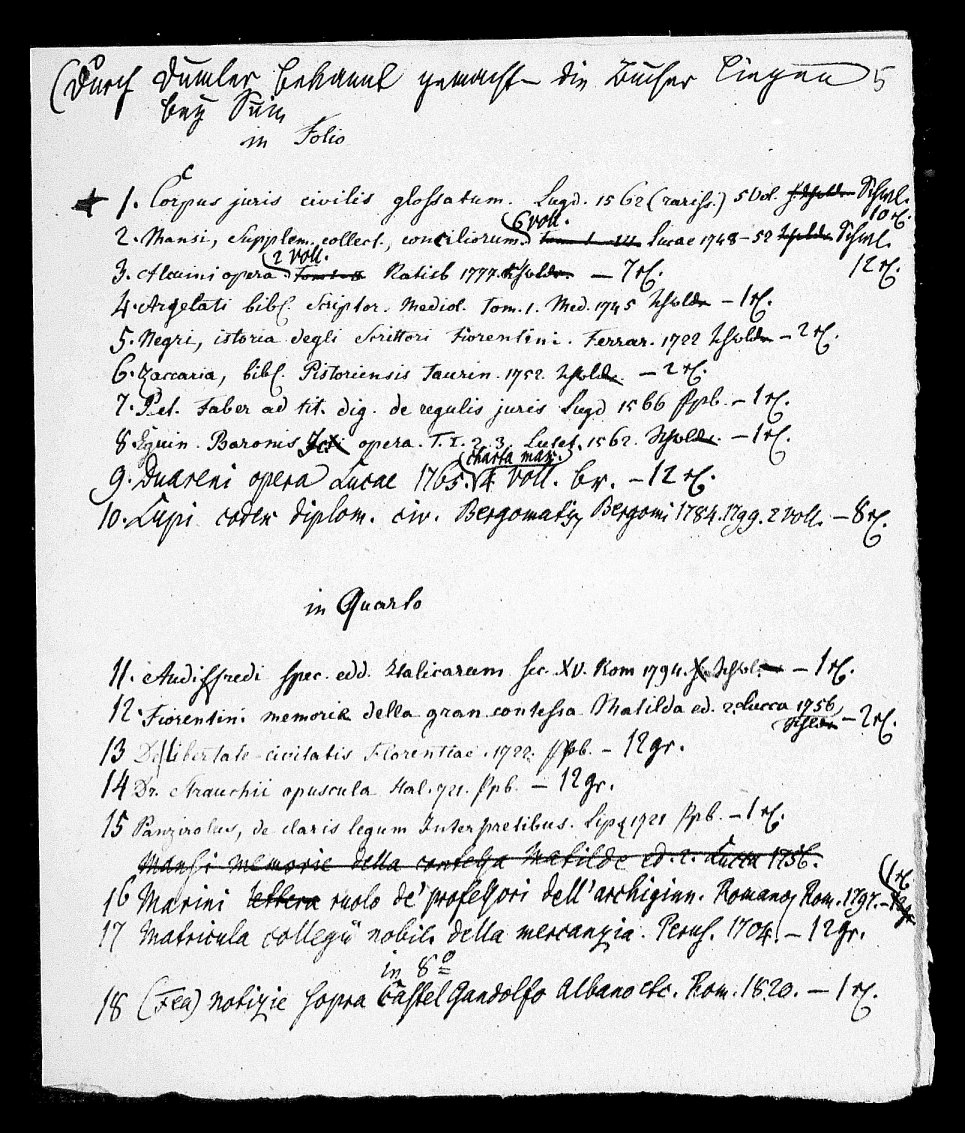 (Durch Dümler bekannt gemacht die Bücher liegen 5
bey
in Folio
1. Corpus juris civilis glossatum. Lugd. 1562 (rariss.) 5 Vol. Schwl.
10 rℓ.
6 voll.
2. Mansi, Supplem. collect. conciliorum. Lucae 1748-52 Schwl.
2 voll. 12 rℓ.
3. Alcuini opera. Tom 1-2 Ratisb 1777. – 7 rℓ.
4. Argelati bibl. Scriptor. Mediol. Tom. 1. Med. 1745 – 1 rℓ.
5. Negri, istoria degli Scrittori Fiorentini. Ferrar. 1722 – 2 rℓ.
6. Zaccaria, bibl. Pistoriensis Taurin. 1752. – 2 rℓ.
7. Pet. Faber ad tit. dig. de regulis juris Lugd 1566 Ppb. – 1 rℓ.
8 Eguin. Baronis Jcti opera. T. 1. 2. 3. Lutet. 1562. – 1 rℓ.
charta max.
9. Duareni opera Lucae 1765. 4 voll. br. – 12 rℓ.
10. Lupi codex diplom. civ. Bergomatis, Bergomi 1784. 1799. 2 voll. – 8 rℓ.
in Quarto
11. Audiffredi spec. edd. Italicarum sec. XV. Rom 1794. – 1 rℓ.
12. Fiorentini memorie della gran contessa Matilda ed. 2. Lucca 1756
– 2 rℓ.
13 De libertate civitatis Florentiae. 1722. Ppb. – 12 gr.
14 Dr. Strauchii opuscula Hal. 721. Ppb. – 12 gr.
15 Panzirolus, de claris legum Interpretibus. Lips 1721 Ppb. – 1 rℓ.
Mansi memorie della contessa Matilde ed. 2. Lucca 1756.
1 rℓ.
16 Marini lettera ruolo de' professori dell' archiginn. Romano, Rom. 1797. – 12 gr.
17 Matricula collegii nobil. della mercanzia. Perus. 1704. – 12 gr.
in 8º
18 (Fea) notizie sopra Castel Gandolfo Albano etc. Rom. 1820. – 1 rℓ.